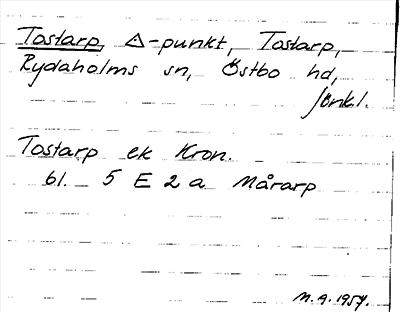 Tostarp, △-punkt, Tostarp,
Rydaholms sn, Östbo hd,
Jönkl.
Tostarp ek Kron.
bl. 5 E 2 a Mårarp
M.A. 1957.